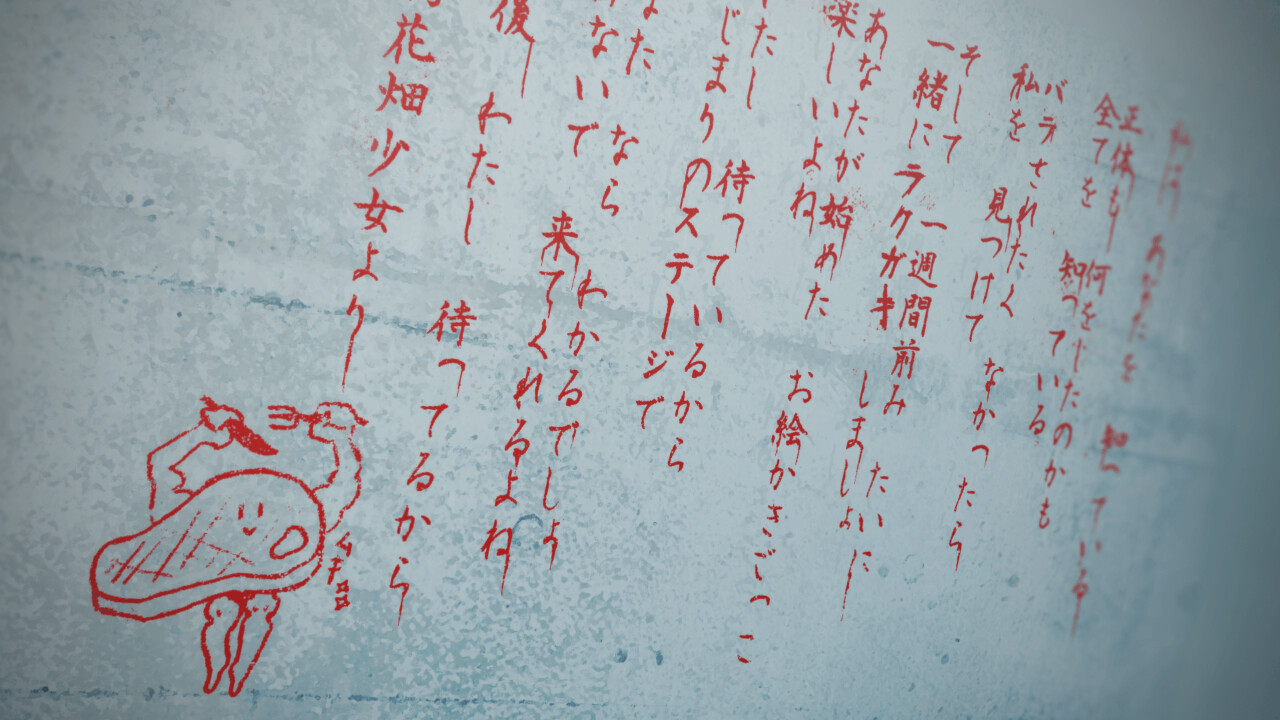 私は あなたを 知っている
正体も 何をしたのかも
全てを 知っている
バラされたく なかったら
私を 見つけて
そして 一週間前みたいに
一緒に ラクガキ しましょ
あなたが始めた お絵かきごっこ
楽しいよね
たし 待っているから
じまりのステージで
なた なら わかるでしょ
ないで 来てくれるよね
後 わたし 待ってるから
花畑少女より